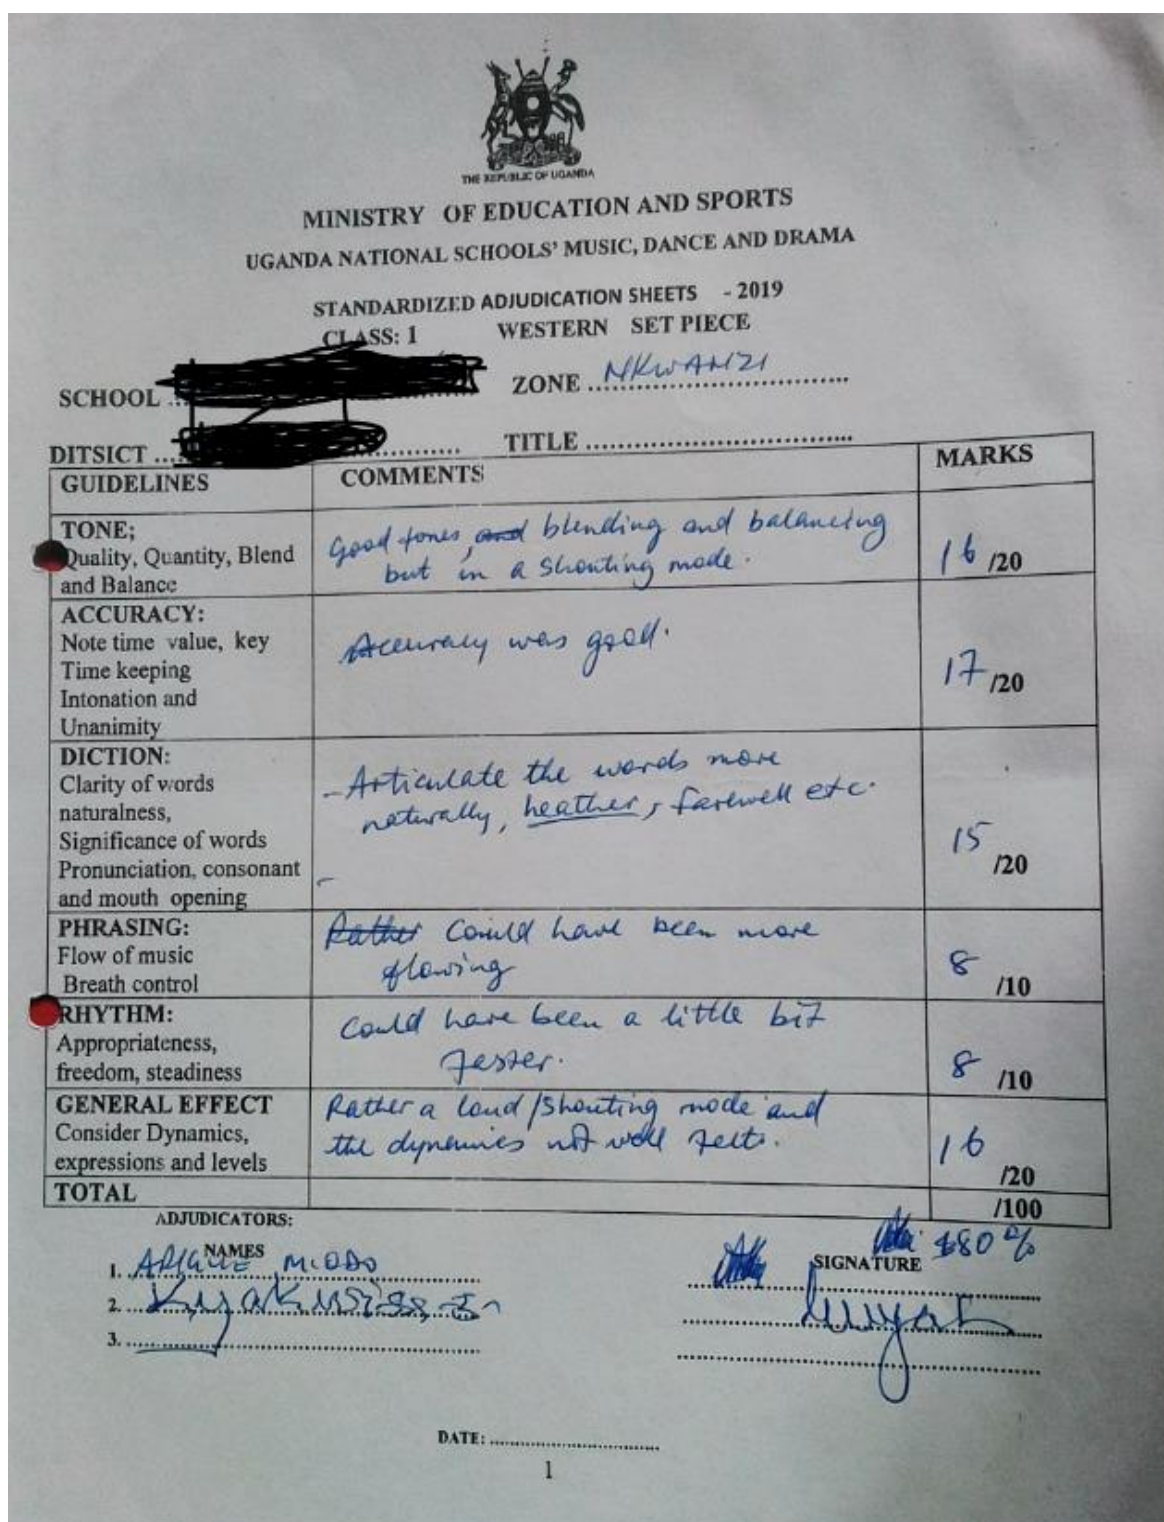 THE REPUBLIC OF UGANDA
MINISTRY OF EDUCATION AND SPORTS
UGANDA NATIONAL SCHOOLS' MUSIC, DANCE AND DRAMA
STANDARDIZED ADJUDICATION SHEETS - 2019
CLASS: 1 WESTERN SET PIECE
SCHOOL ... ZONE ... NKWANZI ...
DITSICT ... TITLE ...
GUIDELINES COMMENTS MARKS
TONE;
Quality, Quantity, Blend
and Balance
Good tones, and blending and balancing
but in a shouting mode.
16 /20
ACCURACY:
Note time value, key
Time keeping
Intonation and
Unanimity
Accuracy was good.
17 /20
DICTION:
Clarity of words
naturalness,
Significance of words
Pronunciation, consonant
and mouth opening
- Articulate the words more
naturally, heather, farewell etc.
-
15 /20
PHRASING:
Flow of music
Breath control
Rather Could have been more
flowing
8 /10
RHYTHM:
Appropriateness,
freedom, steadiness
Could have been a little bit
faster.
8 /10
GENERAL EFFECT
Consider Dynamics,
expressions and levels
Rather a loud/shouting mode and
the dynamics not well felt.
16 /20
TOTAL /100
ADJUDICATORS:
80%
NAMES SIGNATURE
1.
2.
3.
DATE: ...
1